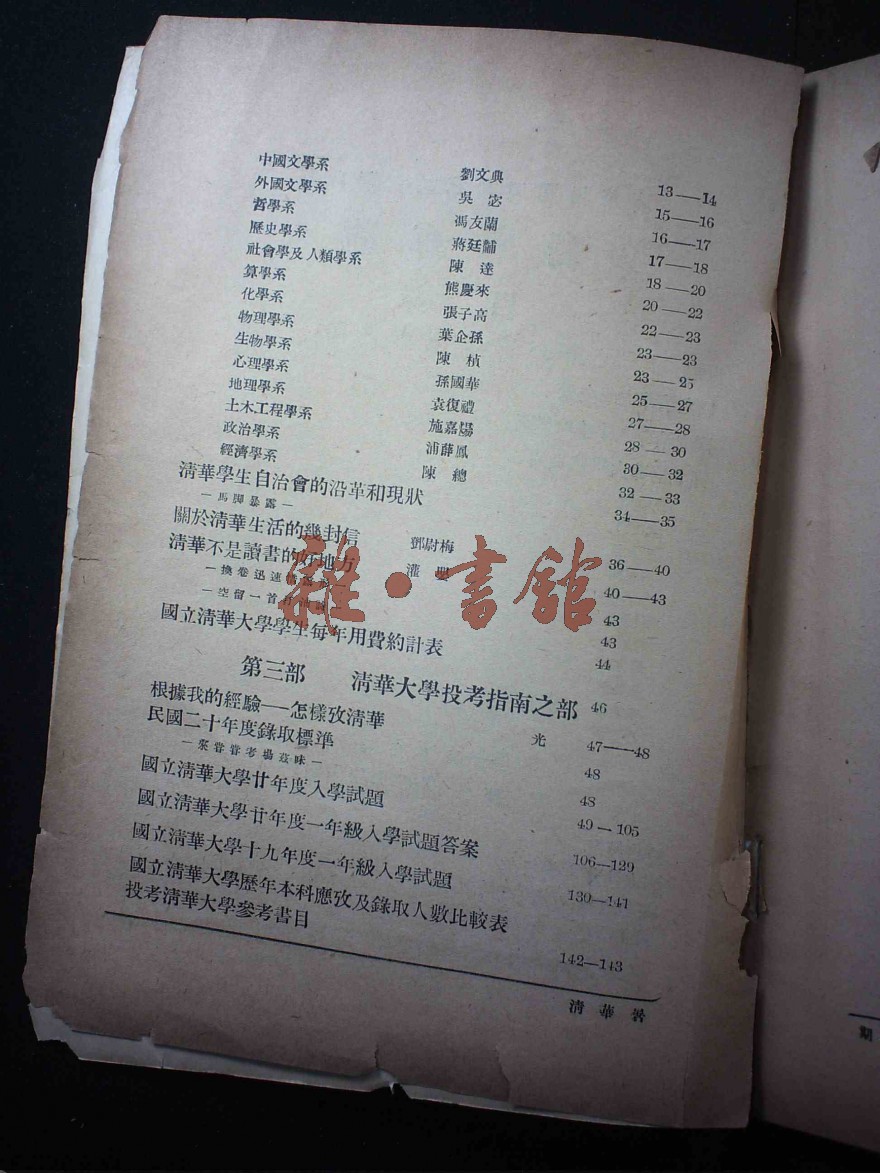 中國文學系 劉文典 13—14
外國文學系 吳宓 15—16
哲學系 馮友蘭 16—17
歷史學系 蔣廷黻 17—18
社會學及人類學系 陳達 18—20
算學系 熊慶來 20—22
化學系 張子高 22—23
物理學系 葉企孫 23—23
生物學系 陳楨 23—25
心理學系 孫國華 25—27
地理學系 袁復禮 27—28
土木工程學系 施嘉煬 28—30
政治學系 浦薛鳳 30—32
經濟學系 陳總 32—33
清華學生自治會的沿革和現狀 34—35
—馬脚暴露—
關於清華生活的幾封信 鄧尉梅 36—40
清華不是讀書的好地方 灌 40—43
—換卷迅速 43
—空留一首 43
國立清華大學學生每年用費約計表 44
第三部 清華大學投考指南之部 46
根據我的經驗——怎樣攷清華 光 47——48
民國二十年度錄取標準 48
—嘗嘗考場滋味— 48
國立清華大學廿年度入學試題 49—105
國立清華大學廿年度一年級入學試題答案 106—129
國立清華大學十九年度一年級入學試題 130—141
國立清華大學歷年本科應攷及錄取人數比較表
投考清華大學參考書目 142—143
清華暑
期
雜·書館